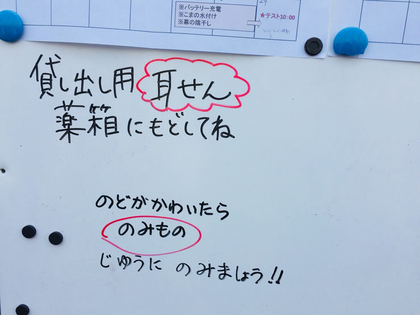 ※バッテリー充電
※こまの水付け
※墓の陰干し
★テスト10:00
貸し出し用 耳せん
薬箱にもどしてね
のどがかわいたら
のみもの
じゆうに のみましょう!!